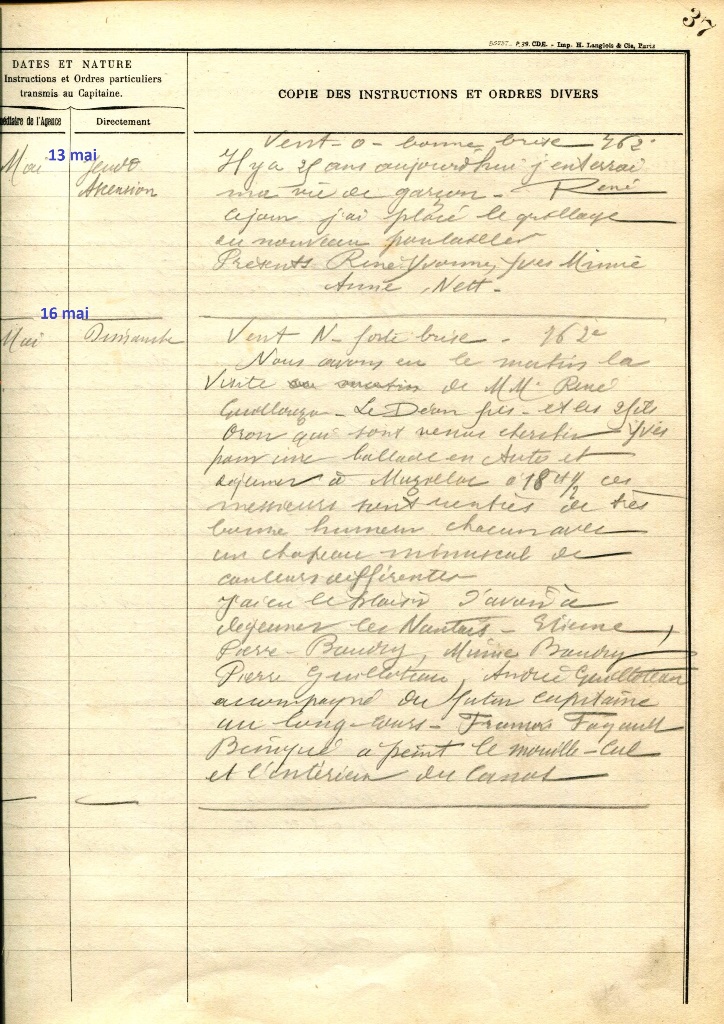 37
P.39. CDE. - Imp. H. Langlois & Cie, Paris
DATES ET NATURE
Instructions et Ordres particuliers
transmis au Capitaine.
COPIE DES INSTRUCTIONS ET ORDRES DIVERS
édiaire de l'Agence
Directement
Vent - O - bonne brise 762
Mai 13 mai Jeudi
Il y a 25 ans aujourd'hui j'enterrai
Ascension
ma vie de garçon - René
Ce jour j'ai placé le grillage
au nouveau poulailler
Présents René Yvonne, Yves Mimie
Anne, Nett -
16 mai
Mai Dimanche
Vent N - forte brise - 762
Nous avons eu le matin la
visite de MM. René
Guillouzo - Le Déan fils - et les 2 fils
Oron qui sont venus chercher Yves
pour une ballade en Auto et
déjeuner à Muzillac à 18 H ½ ces
messieurs sont rentrés de très
bonne humeur chacun avec
un chapeau minuscul de
couleurs différentes
J'ai eu le plaisir d'avoir à
déjeuner les Nantais - Etienne,
Pierre - Baudry, Mimie Baudry
Pierre Guilloteau, André Guilloteau
accompagné du futur capitaine
au long-cours - Francis Fayault
a peint le mouille-cul
et l'intérieur du Canot